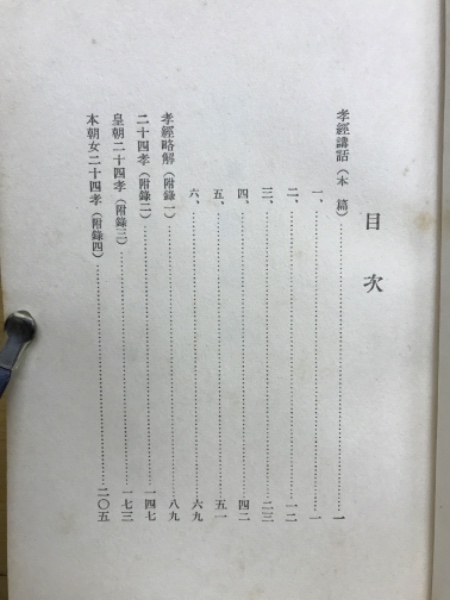 目次
孝經講話（本篇）……一
一、……一
二、……一二
三、……二三
四、……四二
五、……五一
六、……六九
孝經略解（附錄一）……八九
二十四孝（附錄二）……一四七
皇朝二十四孝（附錄三）……一七三
本朝女二十四孝（附錄四）……二〇五